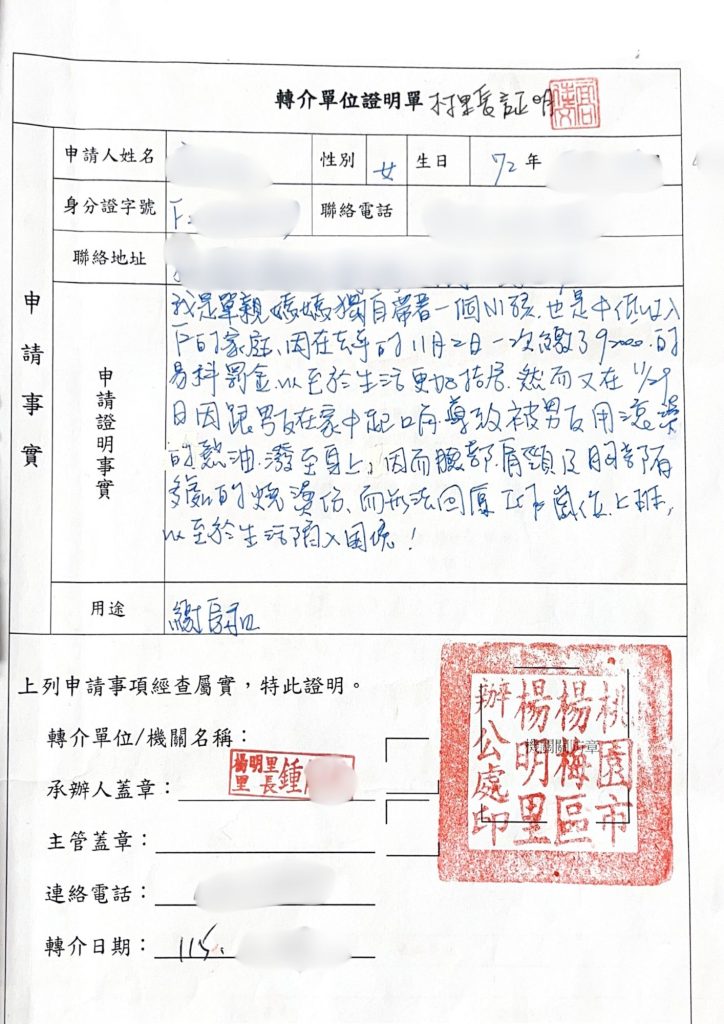 轉介單位證明單 村里長証明
申請事實
申請人姓名
性別 女 生日 72年
身分證字號 F2
聯絡電話
聯絡地址
申請證明事實
我是單親媽媽獨自帶著一個小孩.也是中低收入
戶的家庭、因在去年的11月2日一次繳了92000.的
易科罰金.以至於生活更加拮据.然而又在11/29
日因跟男友在家中起口角.導致被男友用滾燙
的熱油.潑至身上,因而臉部.肩頸及胸部有
多處的燒燙傷、而無法回原工作崗位.上班,
以至於生活陷入困境!
用途 繳房租
上列申請事項經查屬實,特此證明。
轉介單位/機關名稱:
承辦人蓋章: 楊明里里長 鍾
主管蓋章:
連絡電話:
轉介日期: 115.
機關關章
桃園市
楊梅區
楊明里
辦公處印